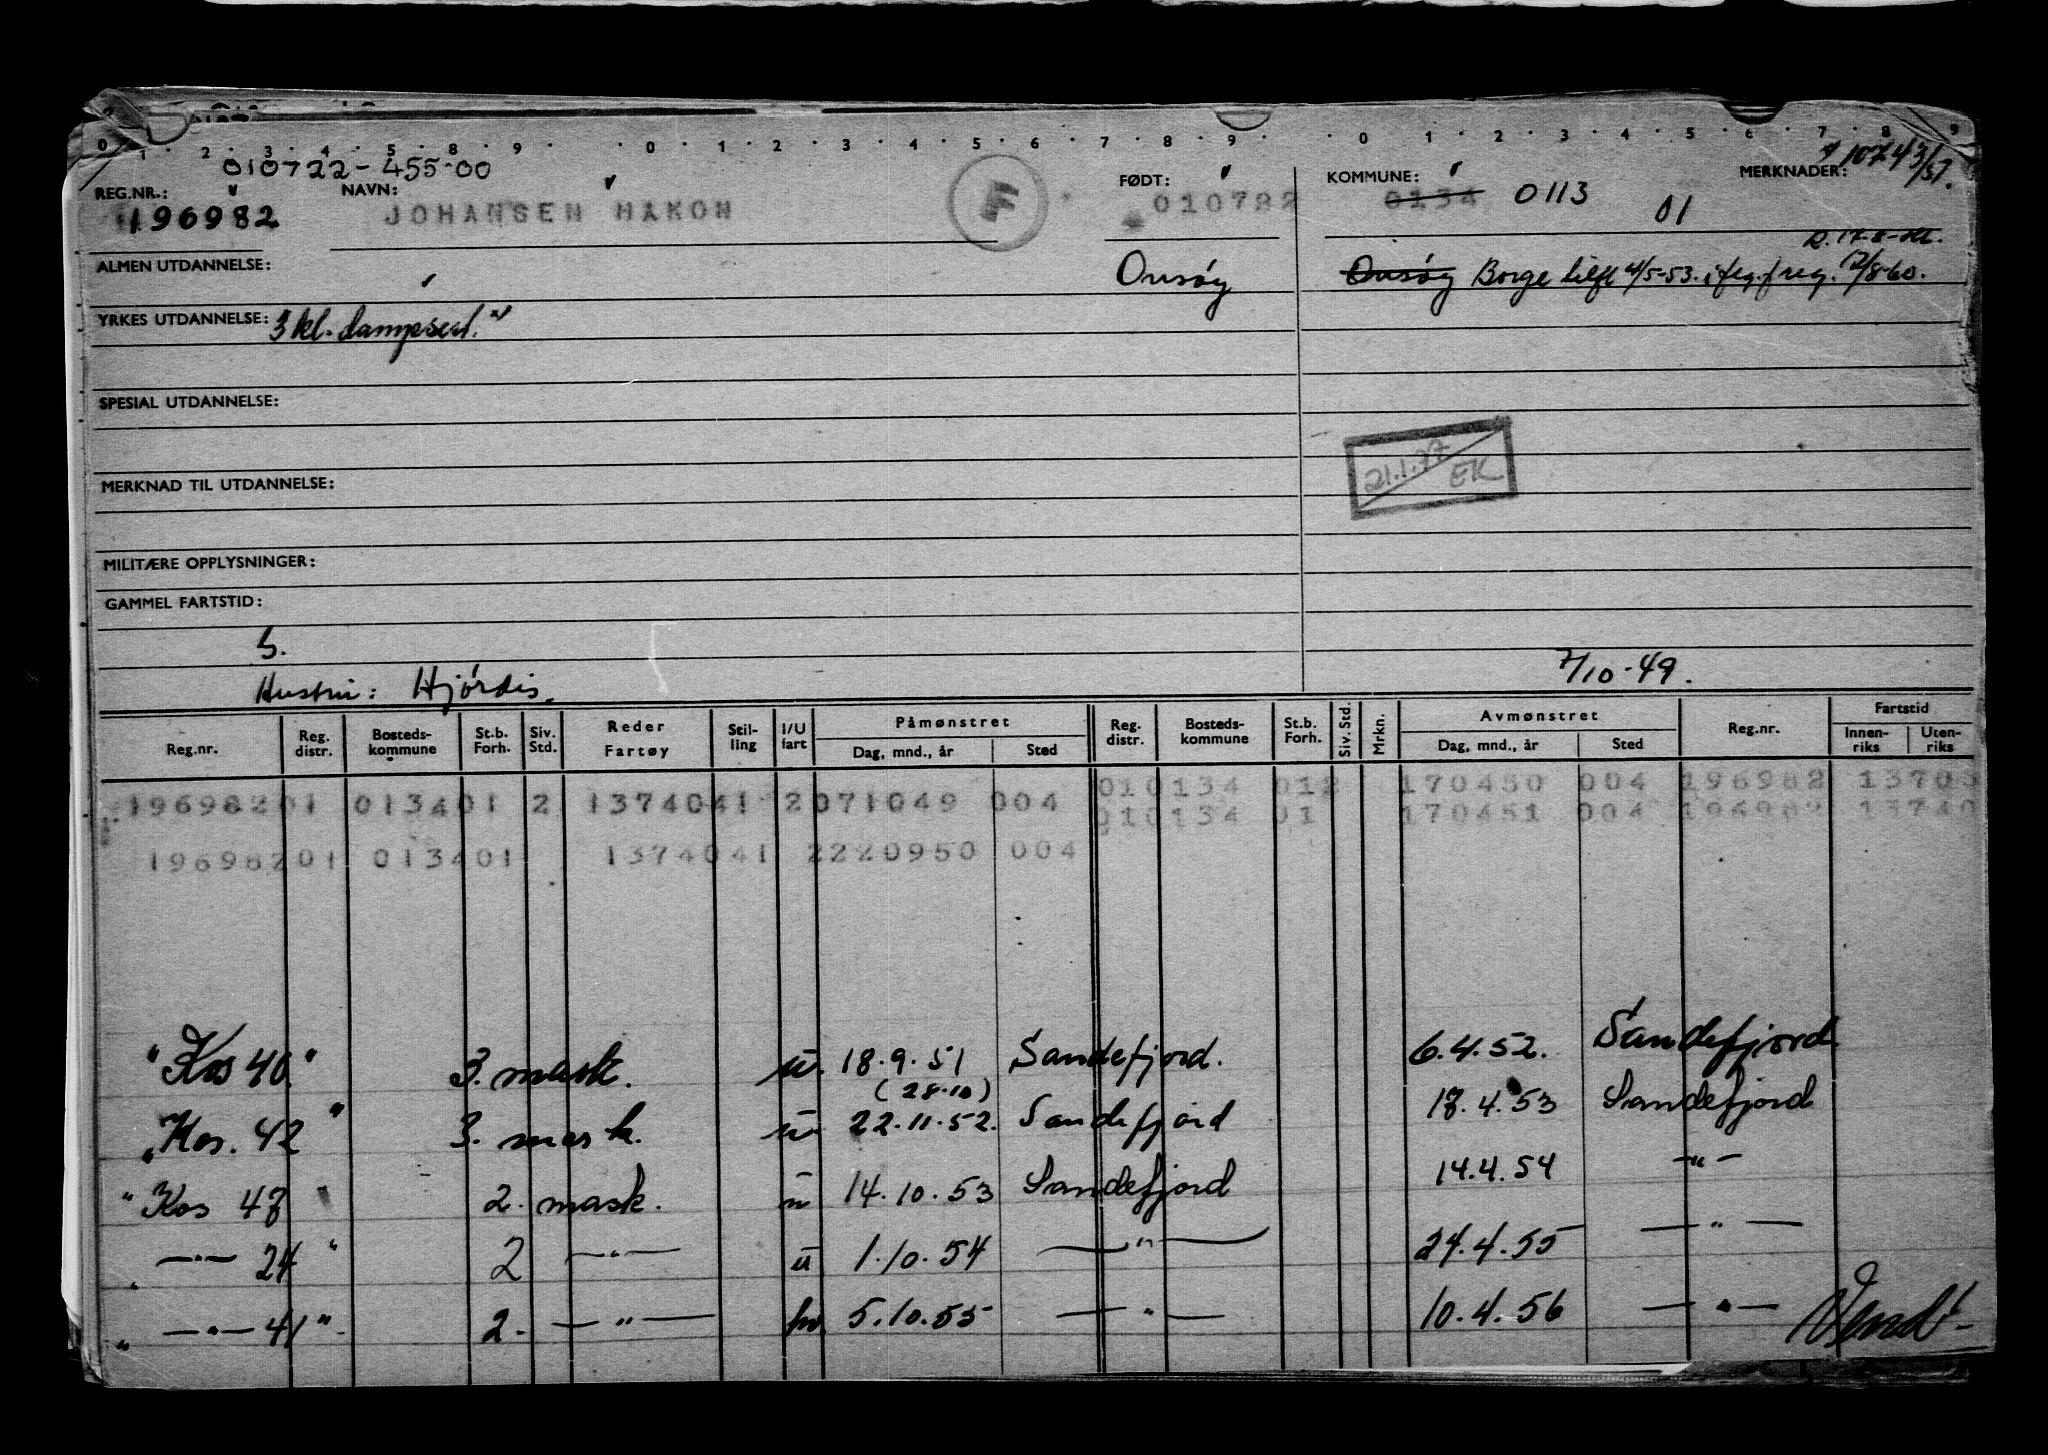 0 1 2 3 4 5 6 7 8 9 0 1 2 3 4 5 6 7 8 9 0 1 2 3 4 5 6 7 8 9
010722-455-00
REG.NR.: NAVN: F FØDT: KOMMUNE: MERKNADER: 10743/51.
196982 JOHANSEN HAKON 010722 0134 0113 01
ALMEN UTDANNELSE: Onsøy Onsøy Borge tilfl 4/5-53. 12/8-60.
YRKES UTDANNELSE: 3 kl. dampsert.
SPESIAL UTDANNELSE:
21.1.77 EK
MERKNAD TIL UTDANNELSE:
MILITÆRE OPPLYSNINGER:
GAMMEL FARTSTID:
S.
Hustru: Hjørdis. 7/10-49.
Reg.nr. Reg. distr. Bosteds-kommune St.b. Forh. Siv. Std. Reder Fartøy Stil-ling I/U fart Påmønstret Dag, mnd., år Sted Reg. distr. Bosteds-kommune St.b. Forh. Siv. Std. Mrkn. Avmønstret Dag, mnd., år Sted Reg.nr. Fartstid Innen-riks Uten-riks
19698201 013401 2 1374041 2071049 004 010134 012 170450 004 196982 13705
010134 01 170451 004 196982 13740
19698201 013401 1374041 2220950 004
"Kos 40" 3. mask. u. 18.9.51 Sandefjord. 6.4.52. Sandefjord.
(28.10)
"Kos. 42" 3. mask. u 22.11.52. Sandefjord 18.4.53 Sandefjord
"Kos 47" 2. mask. u 14.10.53 Sandefjord 14.4.54 -"-
" -"- 24" 2 -"- u 1.10.54 -"- 24.4.55 -"-
" -"- 41" 2. -"- hv. 5.10.55 -"- 10.4.56 -"- Vend!